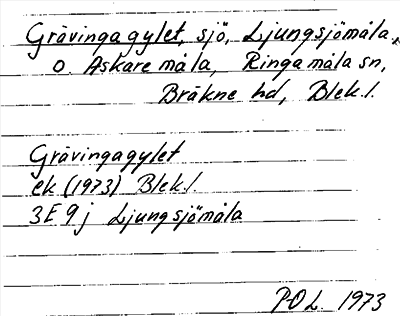 Grävingagylet, sjö, Ljungsjömåla
o. Askaremåla, Ringamåla sn,
Bräkne hd, Blek.l.
Grävingagylet
ek (1973) Blek.l.
3E 9j Ljungsjömåla
P-O L. 1973